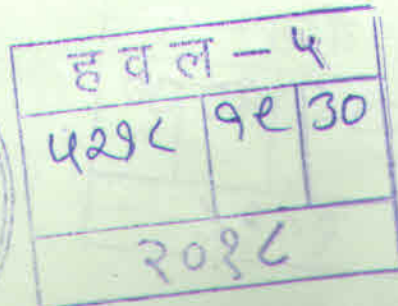 ह व ल - ५
५२७८ १९ ३०
२०१८